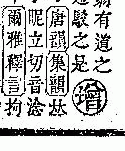 有道之
駁之是
增
唐韻集韻𠀤
昵立切音淰
爾雅釋言拘